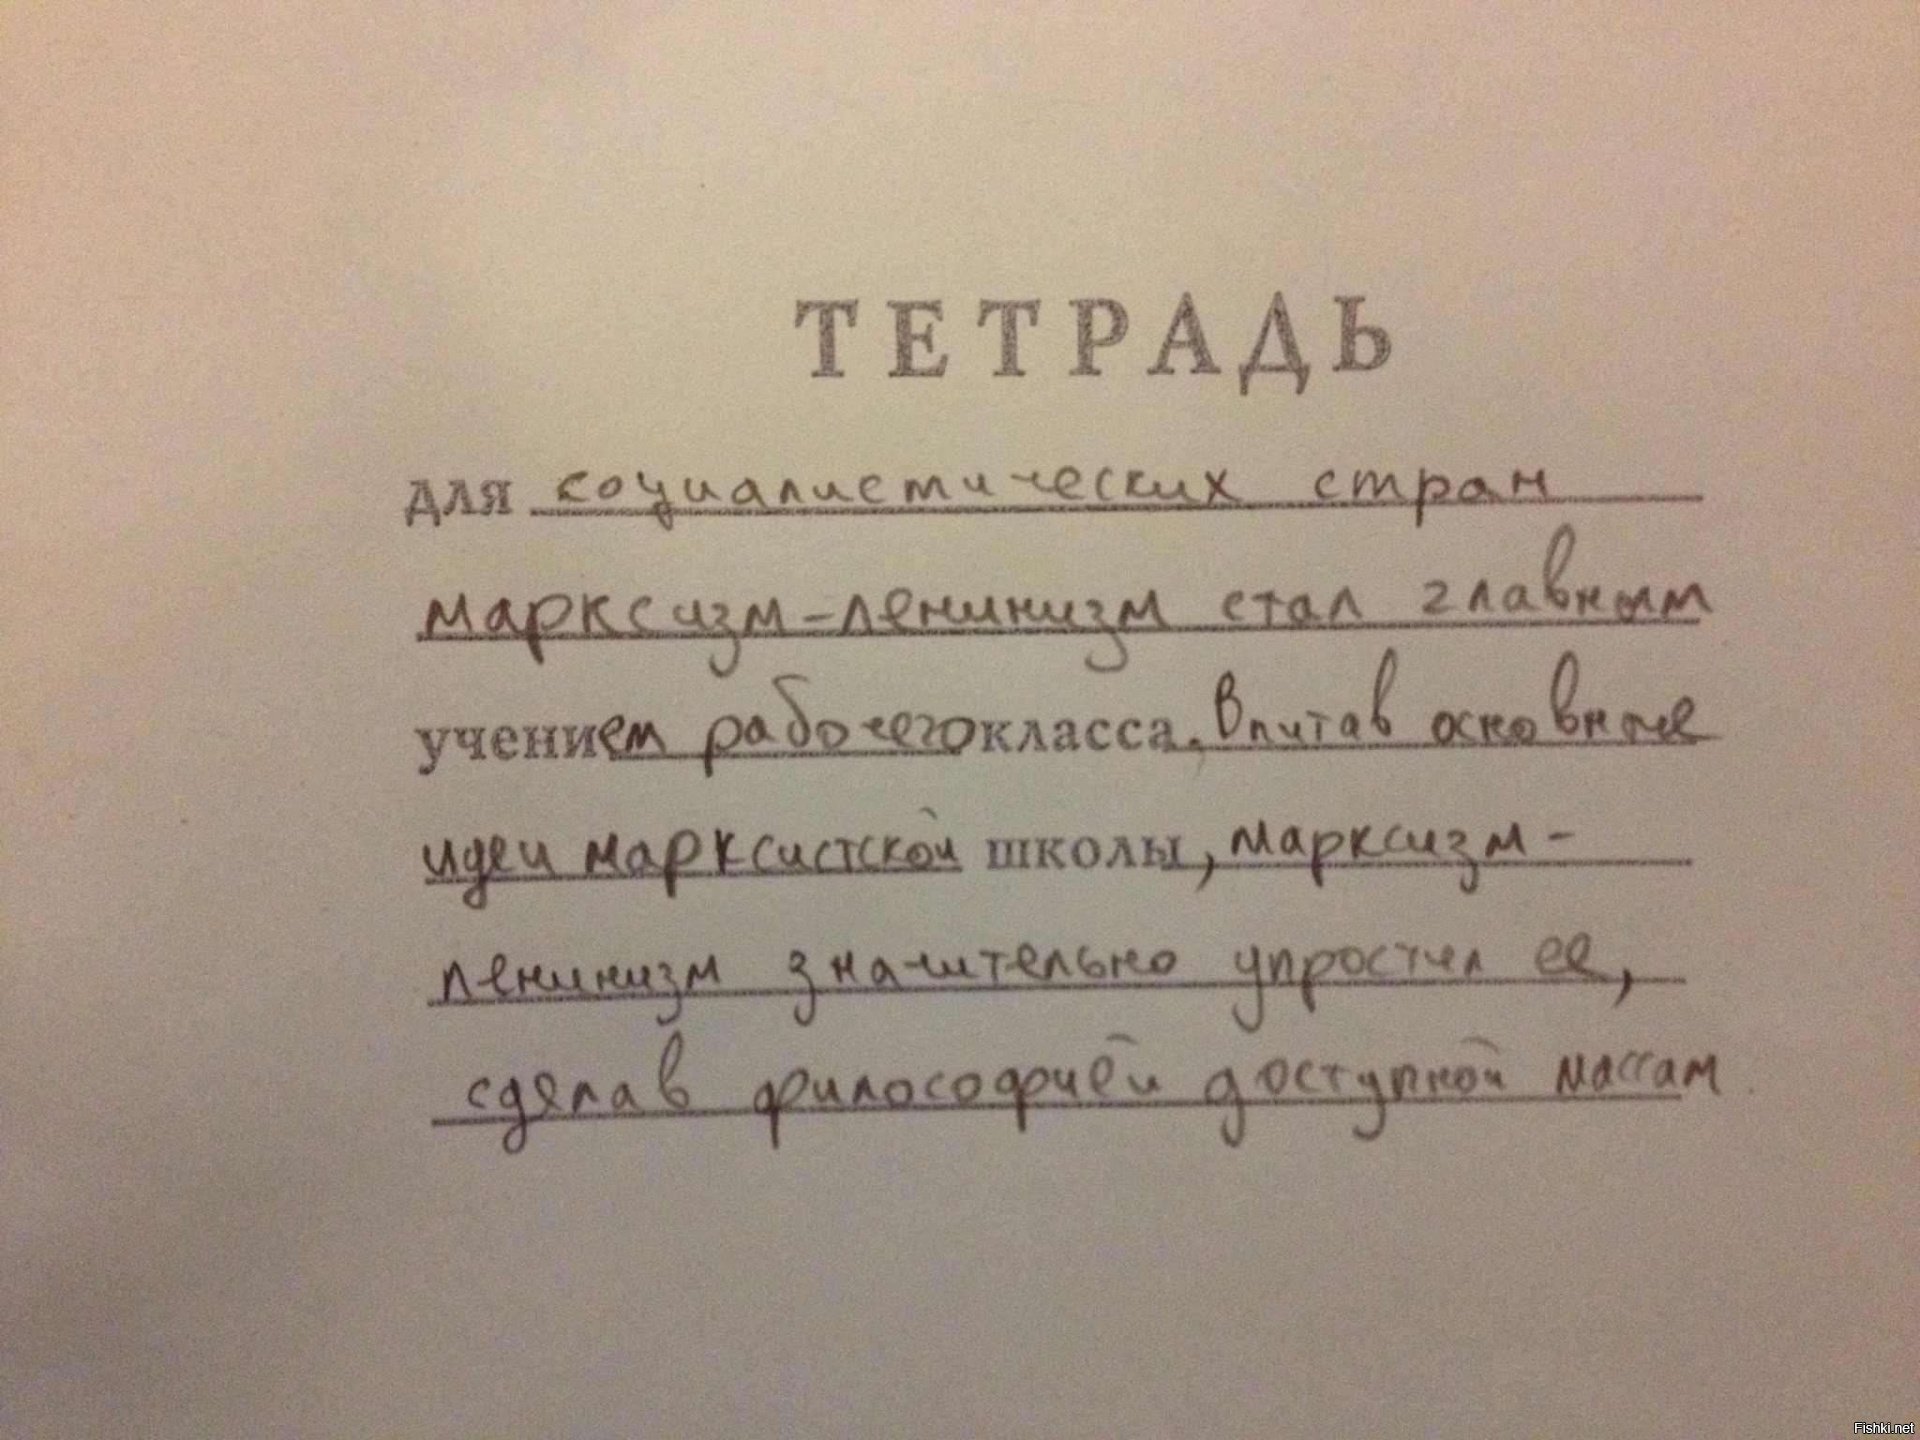 ТЕТРАДЬ
для социалистических стран
марксизм-ленинизм стал главным
учением рабочего класса. Впитав основные
идеи марксистской школы, марксизм-
ленинизм значительно упростил ее,
сделав философией доступной массам
Fishki.net